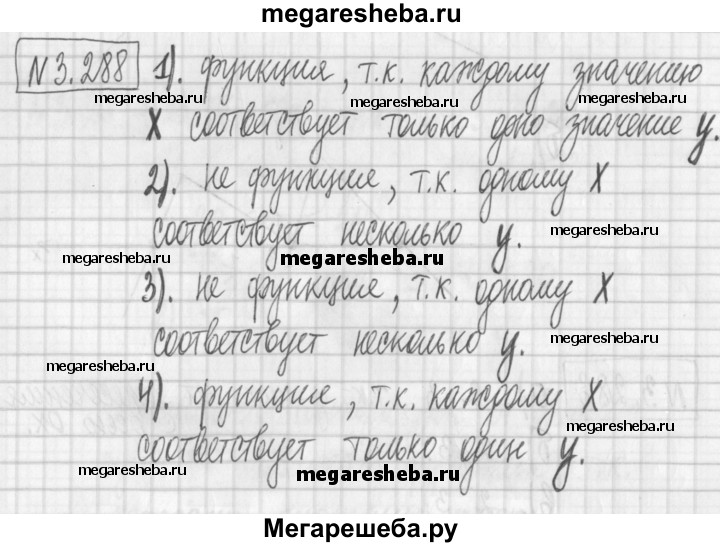 megaresheba.ru
N 3.288 1). функция, т.к. каждому значению
megaresheba.ru megaresheba.ru megaresheba.ru
X соответствует только одно значение y.
2). не функция, т.к. одному X
соответствует несколько y.
megaresheba.ru megaresheba.ru megaresheba.ru
3). не функция, т.к. одному X
соответствует несколько y.
megaresheba.ru megaresheba.ru megaresheba.ru
4). функция, т.к. каждому X
megaresheba.ru
соответствует только один y.
megaresheba.ru megaresheba.ru
Мегарешеба.ру